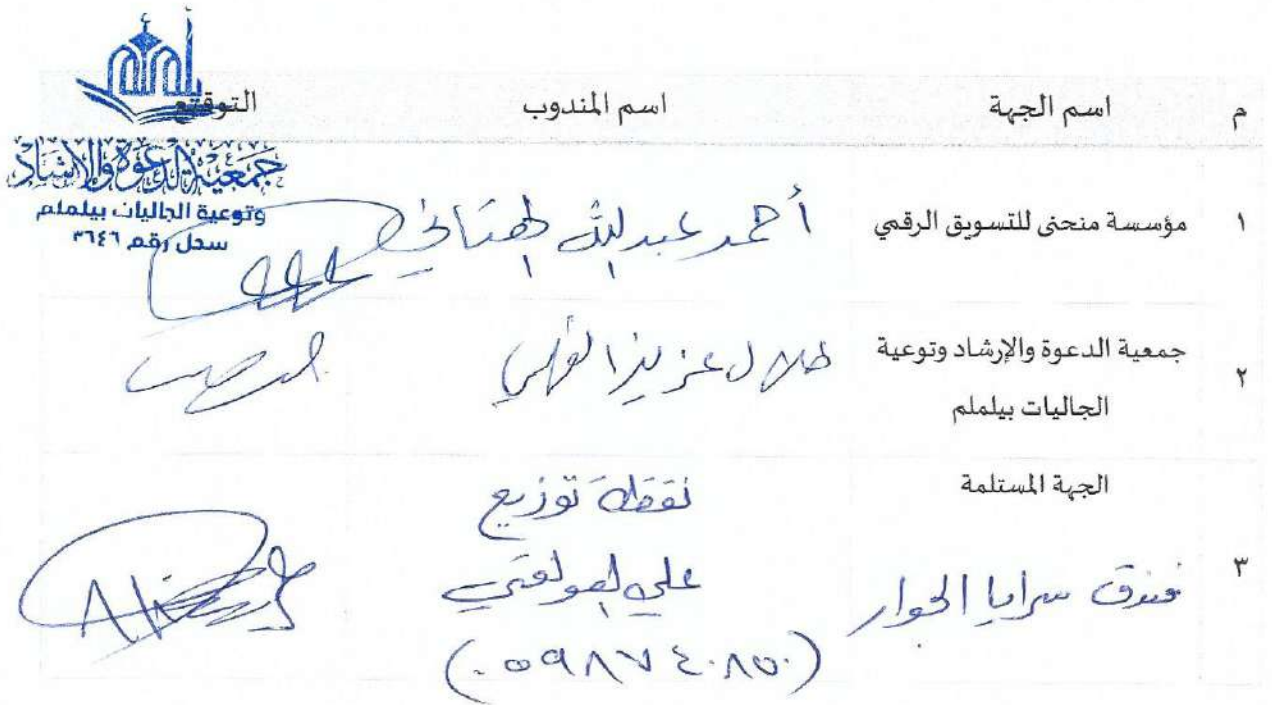 يلملم
جمعية الدعوة والإرشاد
وتوعية الجاليات بيلملم
سجل رقم ٣٦٤٦
م اسم الجهة اسم المندوب التوقيع
١ مؤسسة منحنى للتسويق الرقمي أحمد عبدالله
٢ جمعية الدعوة والإرشاد وتوعية الجاليات بيلملم طلال عزيز
الجهة المستلمة
٣ فندق سرايا الجوار
نقطة توزيع
علي
(٠٥٩٨٧٤٠٨٥٠)